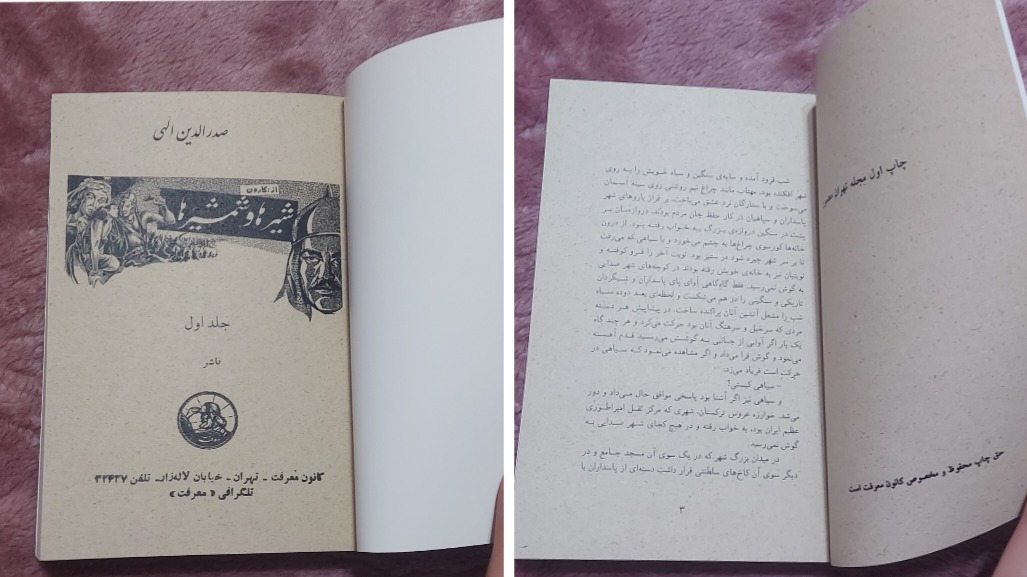 صدرالدین الهی
از: کارون
شیرها و شمشیرها
جلد اول
ناشر
کانون معرفت - تهران - خیابان لاله‌زار - تلفن ۳۲۴۳۷
تلگرافی « معرفت »
چاپ اول مجله تهران مصور
حق چاپ محفوظ و مخصوص کانون معرفت است
شب فرود آمده و سایه‌ی سنگین و سیاه خویش را به روی
شهر افکنده بود. مهتاب مانند چراغ نیم روشنی روی سینه آسمان
می‌سوخت و با ستارگان نرد عشق می‌باخت. بر فراز باروهای شهر
پاسداران و سپاهیان در کار حفظ جان مردم بودند. دروازه‌بان بر
پشت در سنگین دروازه‌ی بزرگ به خواب رفته بود. از درون
خانه‌ها کورسوی چراغ‌ها به چشم می‌خورد و با سیاهی که می‌رفت
تا بر سر شهر چیره شود در ستیز بود. نوبت آخر را فرو کوفته و
نوبتیان نیز به خانه‌ی خویش رفته بودند در کوچه‌های شهر صدایی
به گوش نمی‌رسید. فقط گاه‌گاهی آوای پای پاسداران و شبگردان
تاریکی و سنگینی را در هم می‌شکست و لحظه‌ای بعد دوده سیاه
شب را مشعل آتشین آنان پراکنده ساخت. در پیشاپیش هر دسته
مردی که سرخیل و سرهنگ آنان بود حرکت می‌کرد و هر چند گاه
یک بار اگر آوایی از جانبی به گوشش می‌رسید. قدم آهسته
می‌نمود و گوش فرا می‌داد و اگر مشاهده می‌نمود که سیاهی در
حرکت است فریاد می‌زد:
– سیاهی کیستی؟
و سیاهی نیز اگر آشنا بود پاسخی موافق حال می‌داد و دور
می‌شد. خوارزه عروس ترکستان، شهری که مرکز ثقل امپراطوری
عظم ایران بود، به خواب رفته و در هیچ کجای شهر صدایی به
گوش نمی‌رسید.
در میدان بزرگ شهر که در یک سوی آن مسجد جامع و در
دیگر سوی آن کاخ‌های سلطنتی قرار داشت دسته‌ای از پاسداران با
۳